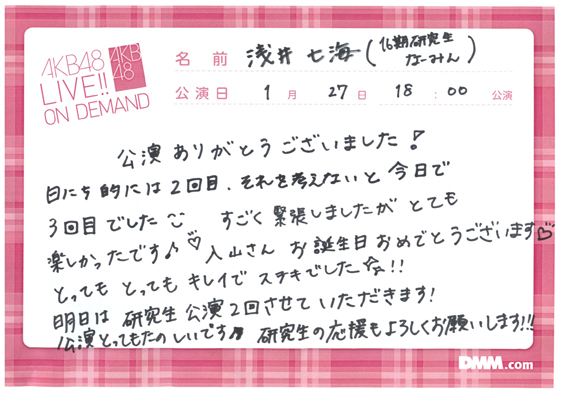 AKB48
LIVE!!
ON DEMAND
AKB
48
名前 浅井 七海(16期研究生 なーみん)
公演日 1月 27日 18:00 公演
公演ありがとうございました!
日にち的には2回目、それを考えないと今日で
3回目でした すごく緊張しましたがとても
楽しかったです♪♡ 入山さん お誕生日おめでとうございます♡
とってもとってもキレイでステキでした☆!!
明日は研究生公演2回させていただきます!
公演とってもたのしいです♪ 研究生の応援もよろしくお願いします!!!
DMM.com